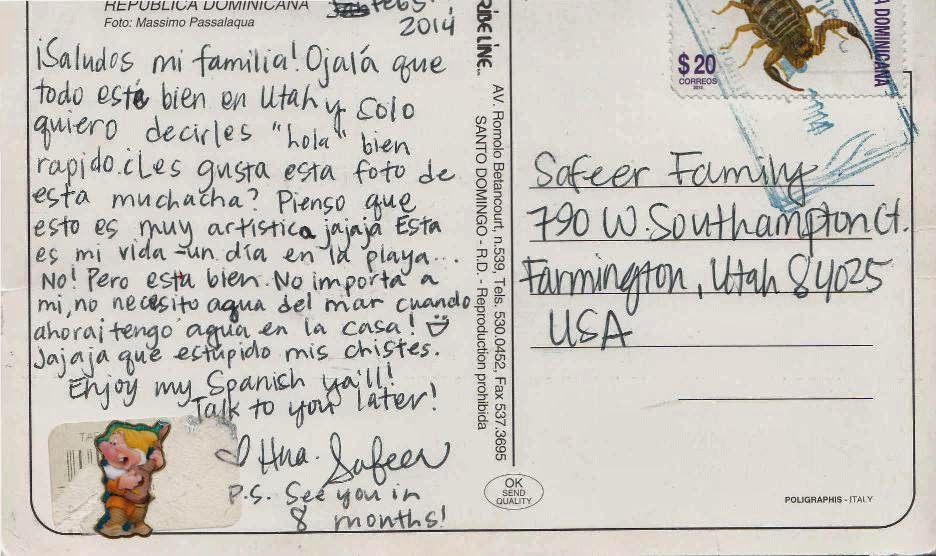 REPUBLICA DOMINICANA
Foto: Massimo Passalaqua
Feb 5,
2014
¡Saludos mi familia! Ojalá que
todo esté bien en Utah y solo
quiero decirles "hola" bien
rapido. ¿Les gusta esta foto de
esta muchacha? Pienso que
esto es muy artistica jajaja Esta
es mi vida - un día en la playa...
No! Pero esta bien. No importa a
mi, no necesito agua del mar cuando
ahorai tengo agua en la casa!
Jajaja que estupido mis chistes.
Enjoy my Spanish ya'll!
Talk to you later!
♡ Hna. Safeer
P.S. See you in
8 months!
RIBE LINE
AV. Romolo Betancourt, n.539, Tels. 530.0452, Fax 537.3695
SANTO DOMINGO - R.D. - Reproduction prohibida
$20
CORREOS
A DOMINICANA
Safeer Family
790 W. Southampton Ct.
Farmington, Utah 84025
USA
OK
SEND
QUALITY
POLIGRAPHIS - ITALY